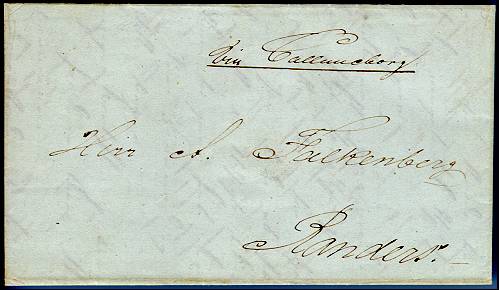 via Callundborg
Herr A. Falkenberg
Randers.